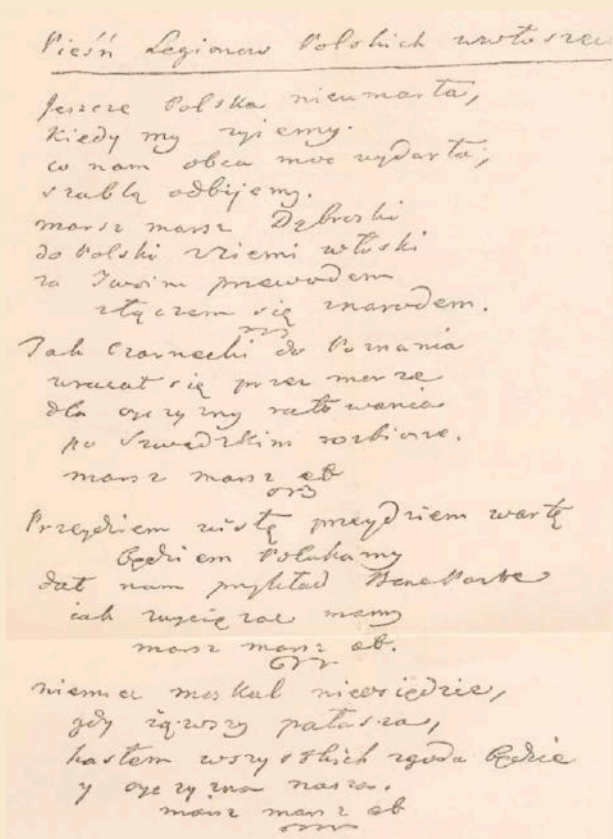 Pieśń Legionow Polskich wewłoszech
Jeszcze Polska nieumarła,
kiedy my żyiemy.
co nam obca moc wydarła,
szablą odbijemy.
marsz marsz Dąbroski
do Polski zziemi włoski
za Twoim przewodem
złączem się znarodem.
Jak Czarnecki do Poznania
wracał się przez morze
dla oyczyzny ratowania
po Szwedzkim rozbiorze.
marsz marsz etc
Przeydziem wisłę przeydziem wartę
będziem Polakamy
dał nam przykład Bonaparte
iak zwyciężać mamy
marsz marsz etc.
niemiec moskal nieosiędzie,
gdy iąwszy pałasza,
hasłem wszystkich zgoda będzie
y oyczyzna nasza.
marsz marsz etc